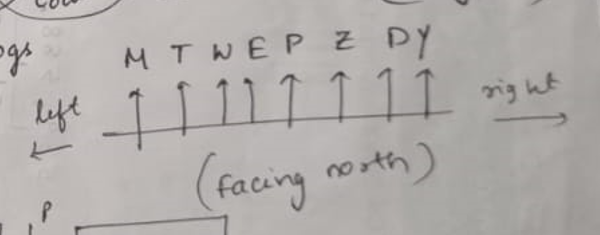 ogs
M T W E P Z D Y
left
right
(facing north)
P